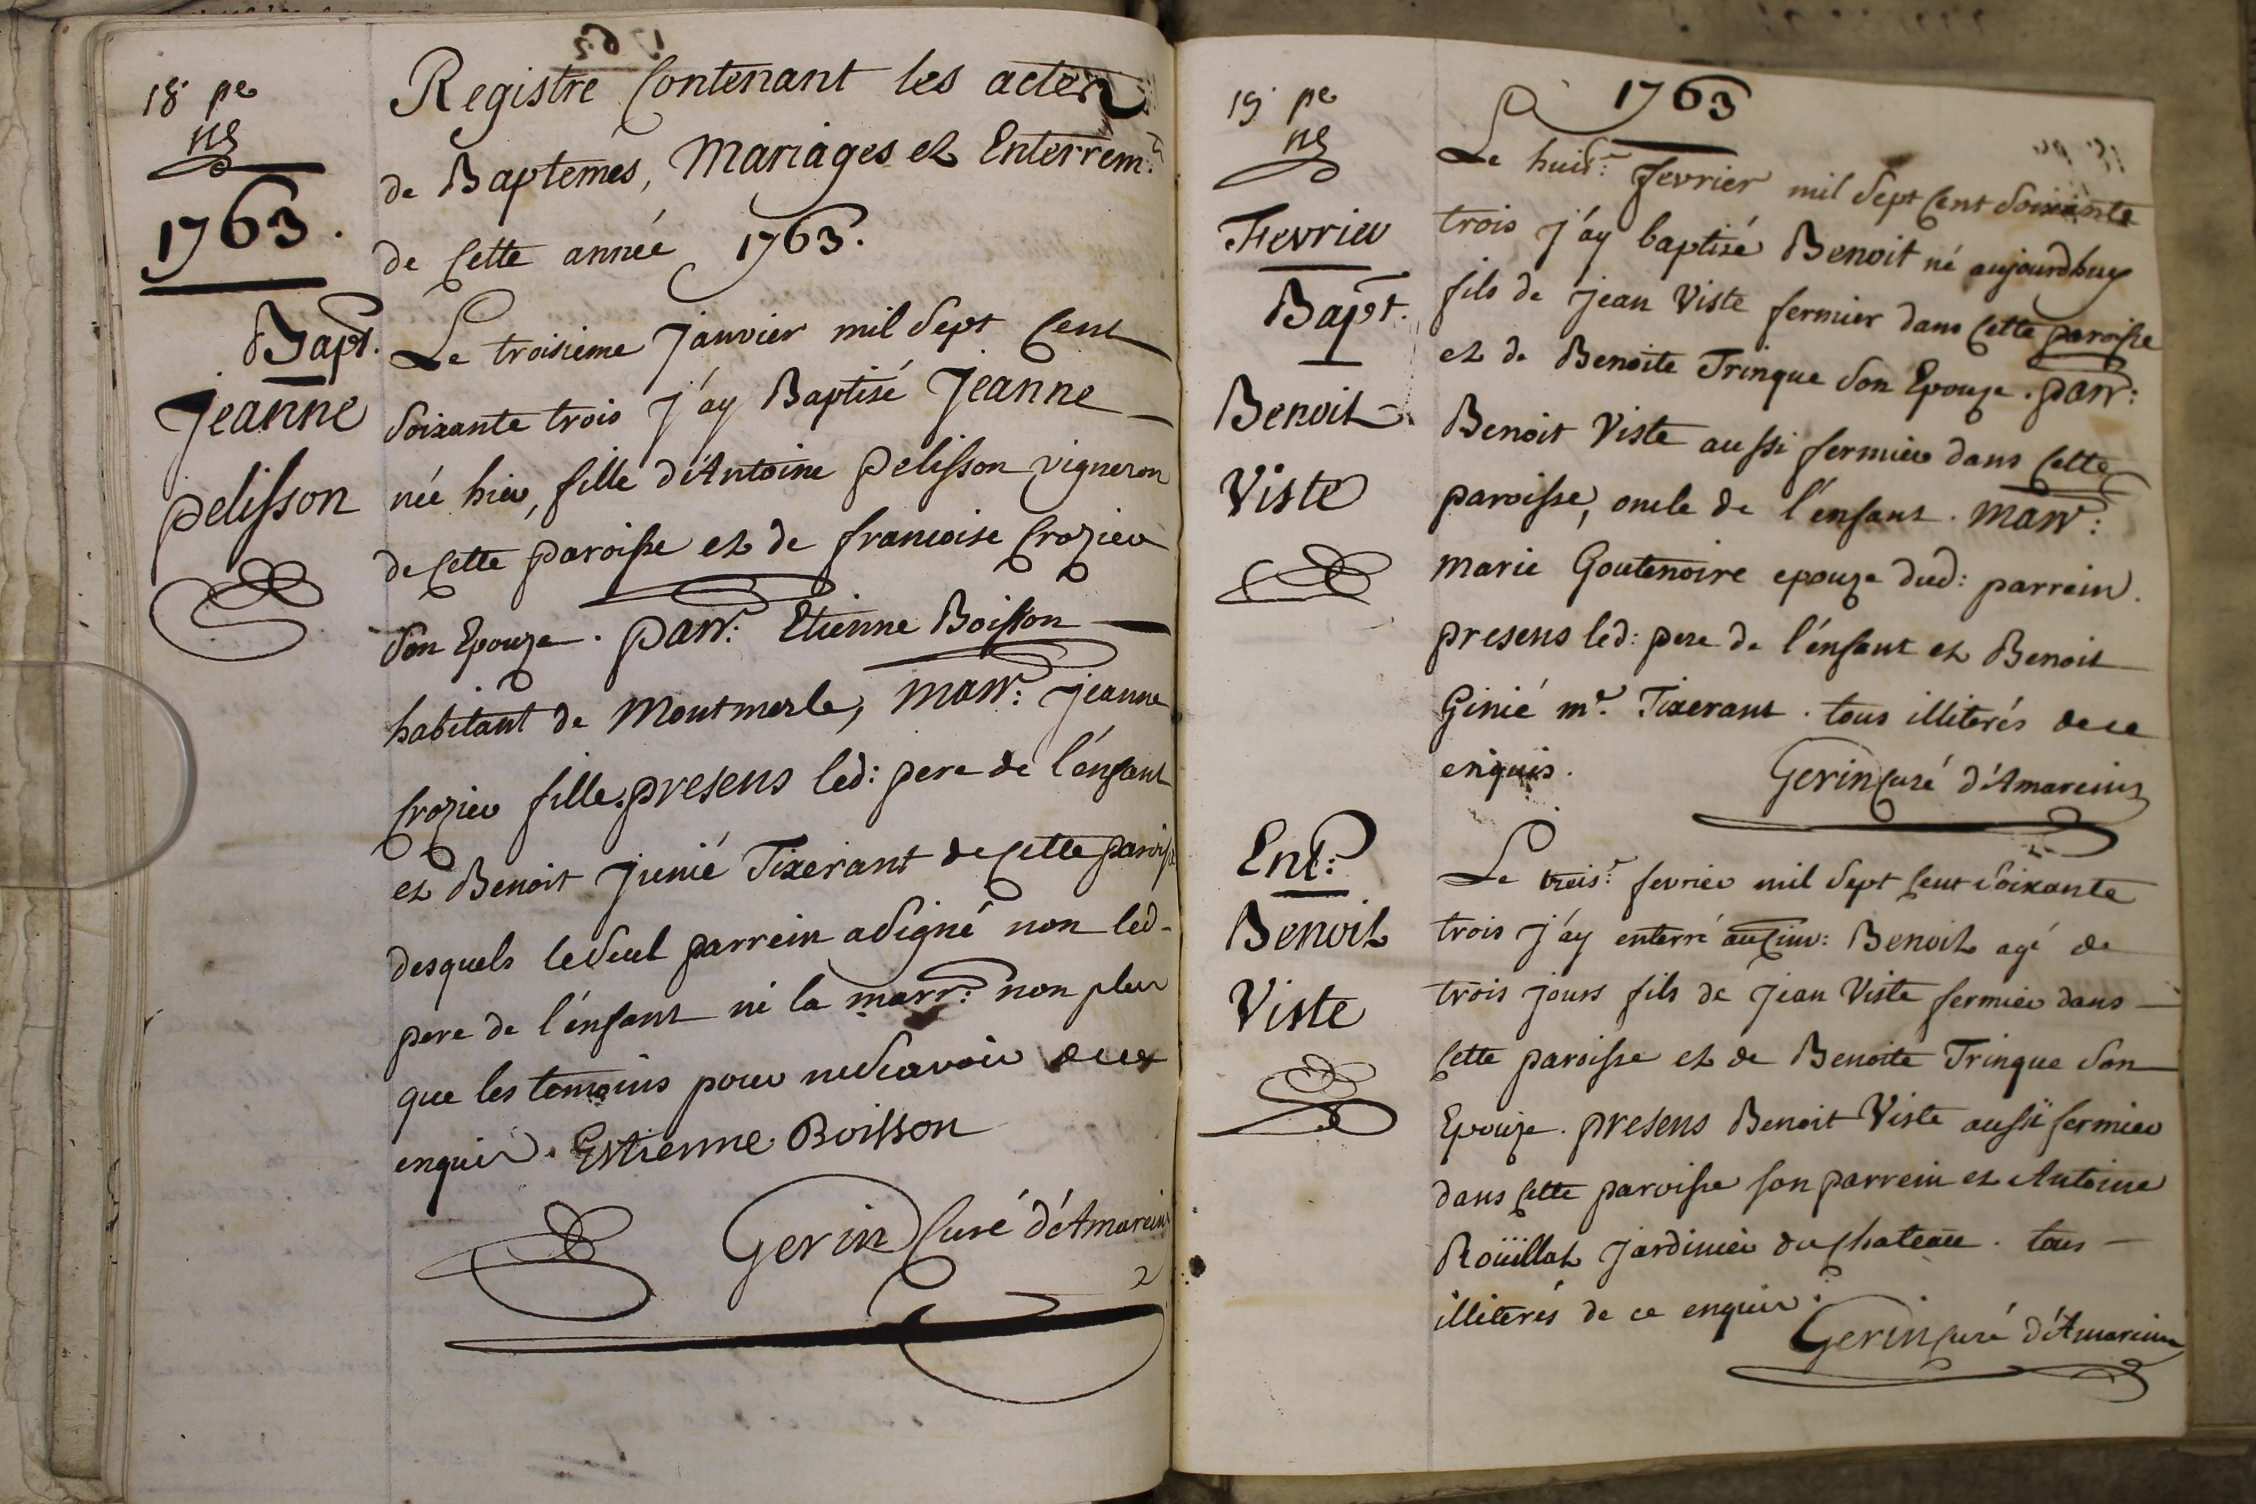 18 pe
1763.
Bapt.
Jeanne
pelisson
Registre Contenant les actes
de Baptemes, Mariages et Enterremts
de Cette année 1763.
Le troisieme Janvier mil Sept Cent
Soixante trois j'ay Baptisé Jeanne
née hier, fille d'Antoine pelisson vigneron
de Cette paroisse et de francoise Crozier
Son Epouze. parr: Etienne Boisson
habitant de Montmerle, marr: jeanne
Crozier fille. presens led: pere de l'enfant
et Benoit Junié Tixerant de Cette paroisse
desquels le Seul parrein a Signé non led-
pere de l'enfant ni la marr: non plus
que les temoins pour ne Scavoir de ce
enquis. Estienne Boisson
Gerin Curé d'Amareins
19 pe
Fevrier
Bapt.
Benoit
Viste
Ent:
Benoit
Viste
1763
Le huit.e fevrier mil Sept Cent Soixante
trois j'ay baptizé Benoit né aujourdhuy
fils de jean Viste fermier dans Cette paroisse
et de Benoite Trinque Son Epouze. parr:
Benoit Viste aussi fermier dans Cette
paroisse, oncle de l'enfant. marr:
marie Goutenoire epouze dud: parrein.
presens led: pere de l'enfant et Benoit
Ginié m.e Tixerant. tous illiterés de ce
enquis. Gerin Curé d'Amareins
Le trois.e fevrier mil Sept Cent Soixante
trois j'ay enterré au Cim: Benoit agé de
trois jours fils de jean Viste fermier dans
Cette paroisse et de Benoite Trinque Son
Epouze. presens Benoit Viste aussi fermier
dans Cette paroisse son parrein et Antoine
Roüillat jardinier du Chateau. tous
illiterés de ce enquis.
Gerin Curé d'Amareins